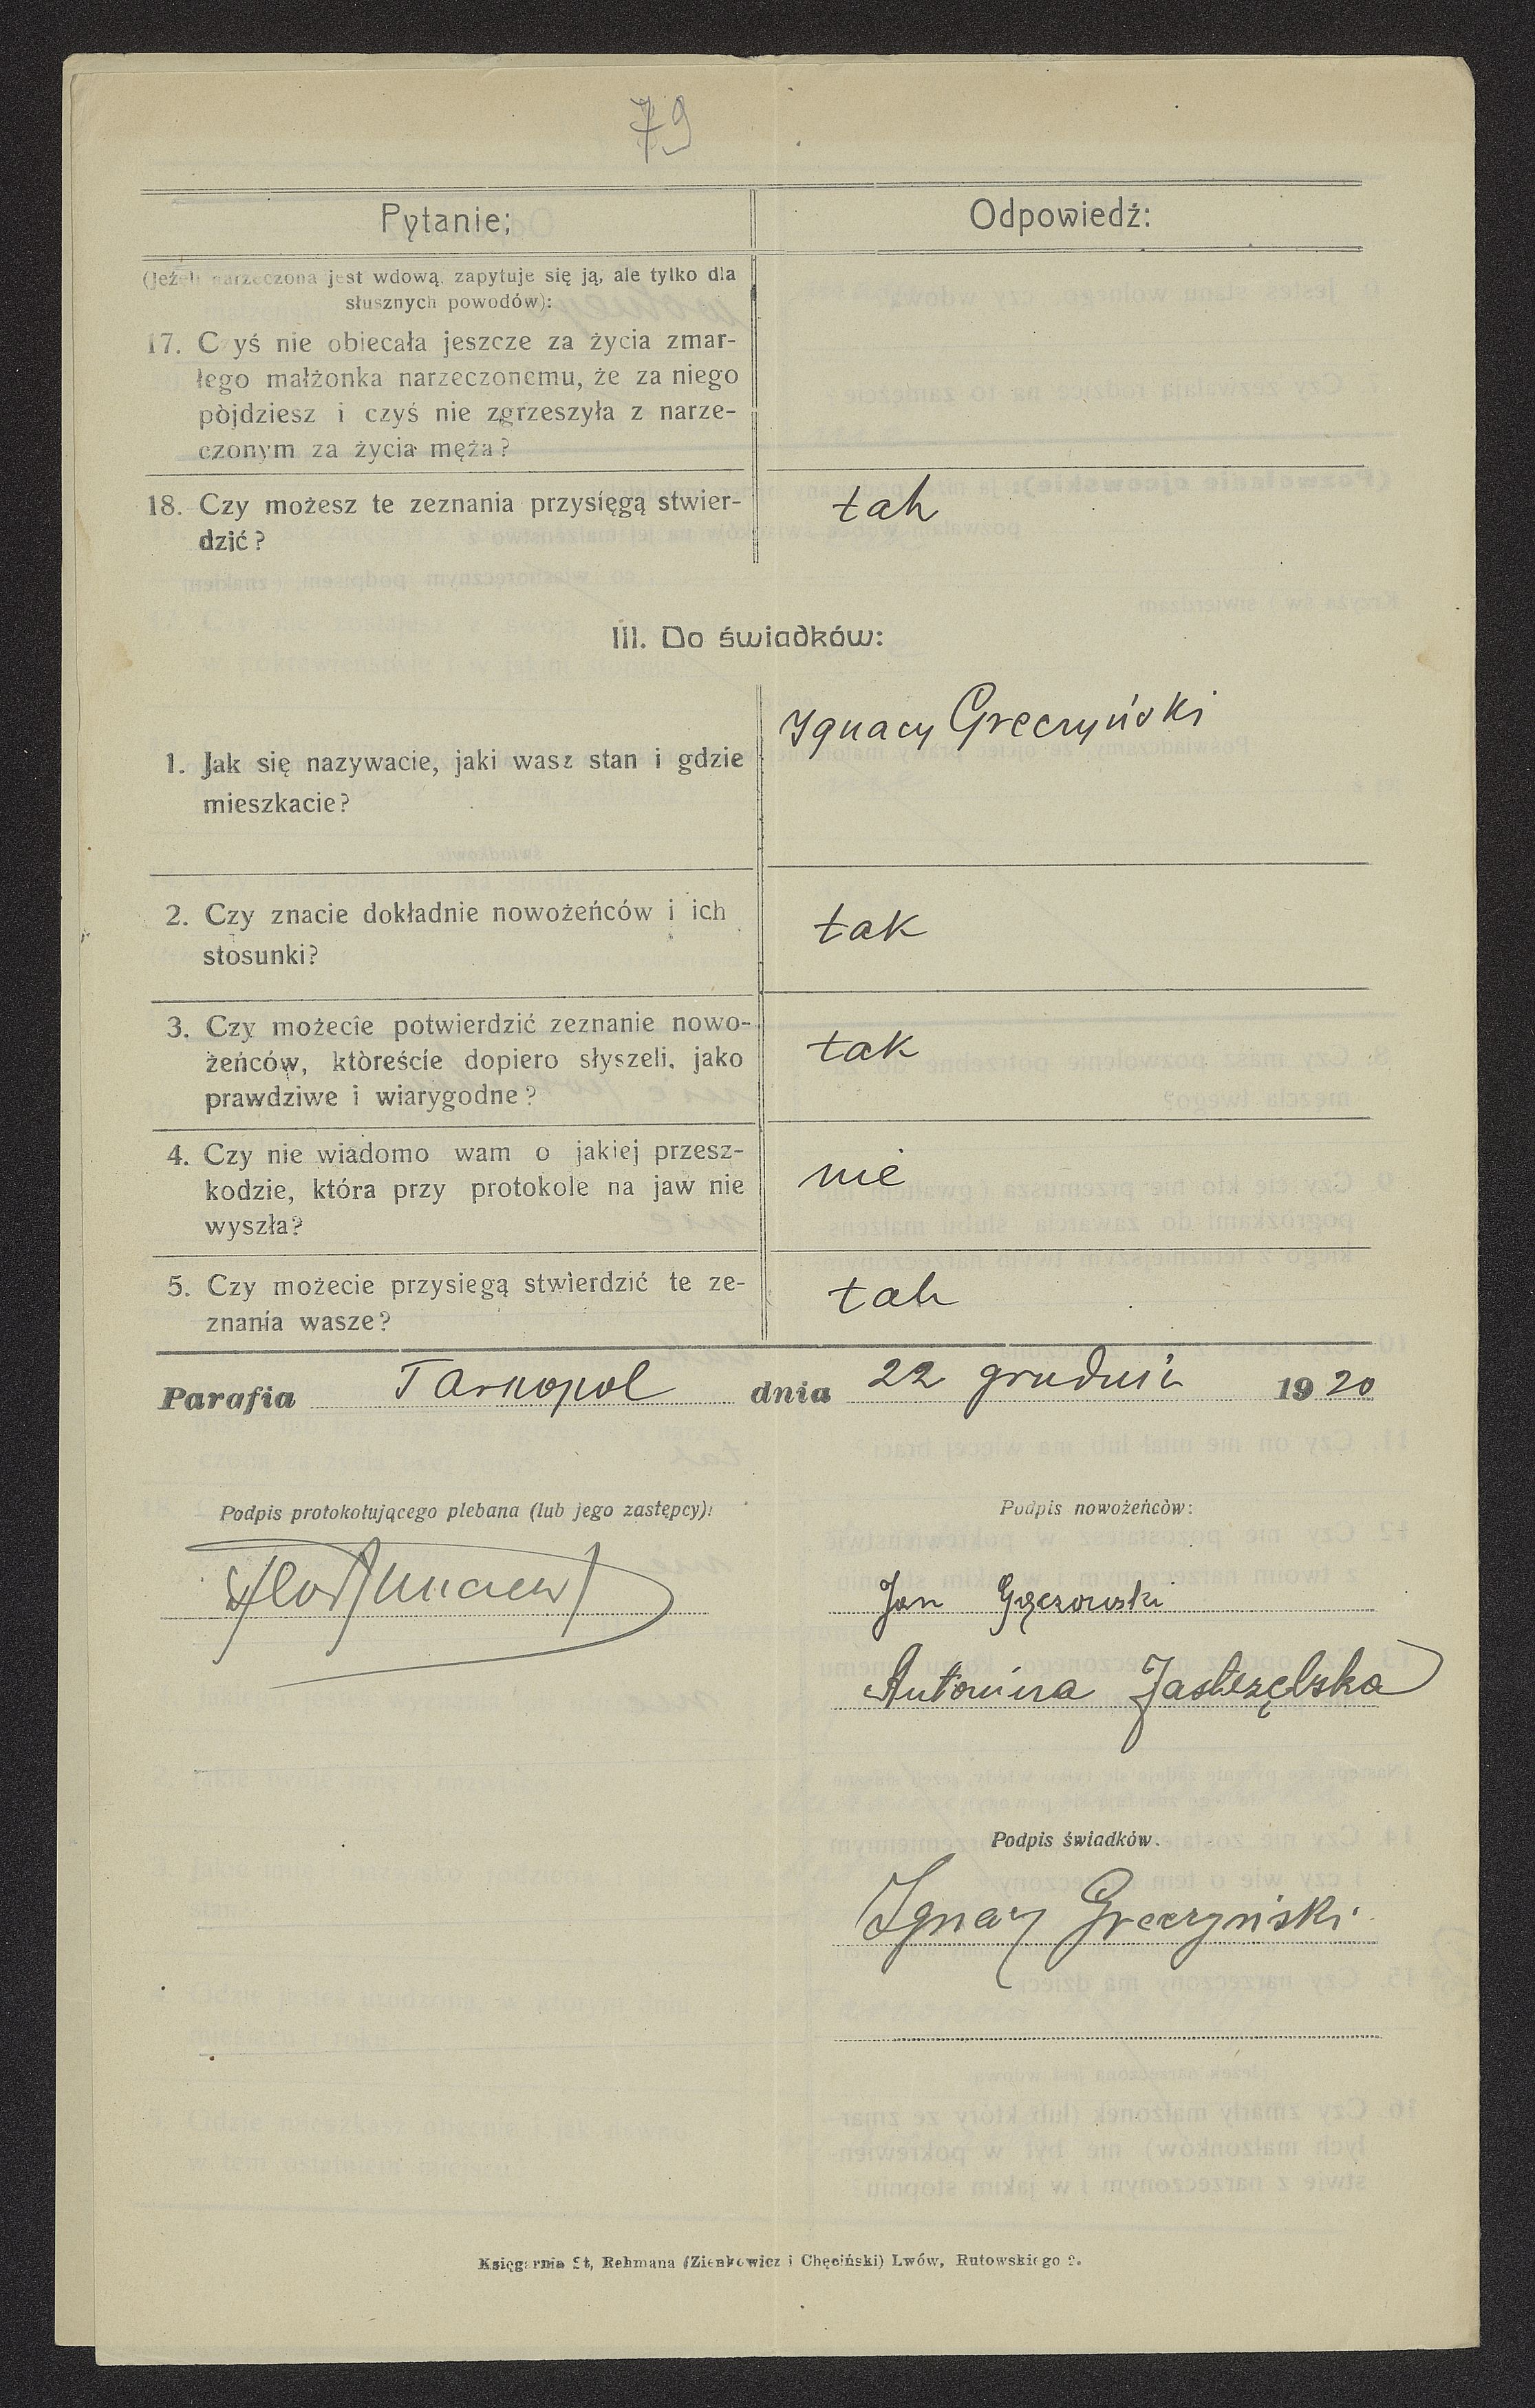 79
Pytanie; Odpowiedź:
(Jeżeli narzeczona jest wdową, zapytuje się ją, ale tylko dla
słusznych powodów):
17. Czyś nie obiecała jeszcze za życia zmar-
łego małżonka narzeczonemu, że za niego
pòjdziesz i czyś nie zgrzeszyła z narze-
czonym za życia męża?
18. Czy możesz te zeznania przysięgą stwier- tak
dzić?
III. Do świadków:
Ignacy Greczyński
1. Jak się nazywacie, jaki wasz stan i gdzie
mieszkacie?
2. Czy znacie dokładnie nowożeńców i ich tak
stosunki?
3. Czy możecie potwierdzić zeznanie nowo- tak
żeńców, któreście dopiero słyszeli, jako
prawdziwe i wiarygodne?
4. Czy nie wiadomo wam o jakiej przesz- nie
kodzie, która przy protokole na jaw nie
wyszła?
5. Czy możecie przysiegą stwierdzić te ze- tak
znania wasze?
Parafia Tarnopol dnia 22 grudnia 1920
Podpis protokołującego plebana (lub jego zastępcy): Podpis nowożeńców:
Jan
Antonina
Podpis świadków.
Ignacy Greczyński
Księgarnia St, Rehmana (Zienkowicz i Chęciński) Lwów, Rutowskiego 9.